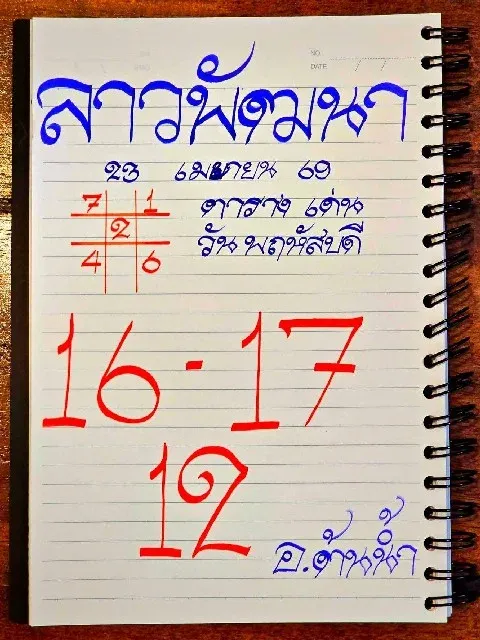 NO.
DATE
ลาวพัฒนา
23 เมษายน 69
7 1 ตาราง เด่น
2
วัน พฤหัสบดี
4 6
16 - 17
12
อ.ต้นน้ำ